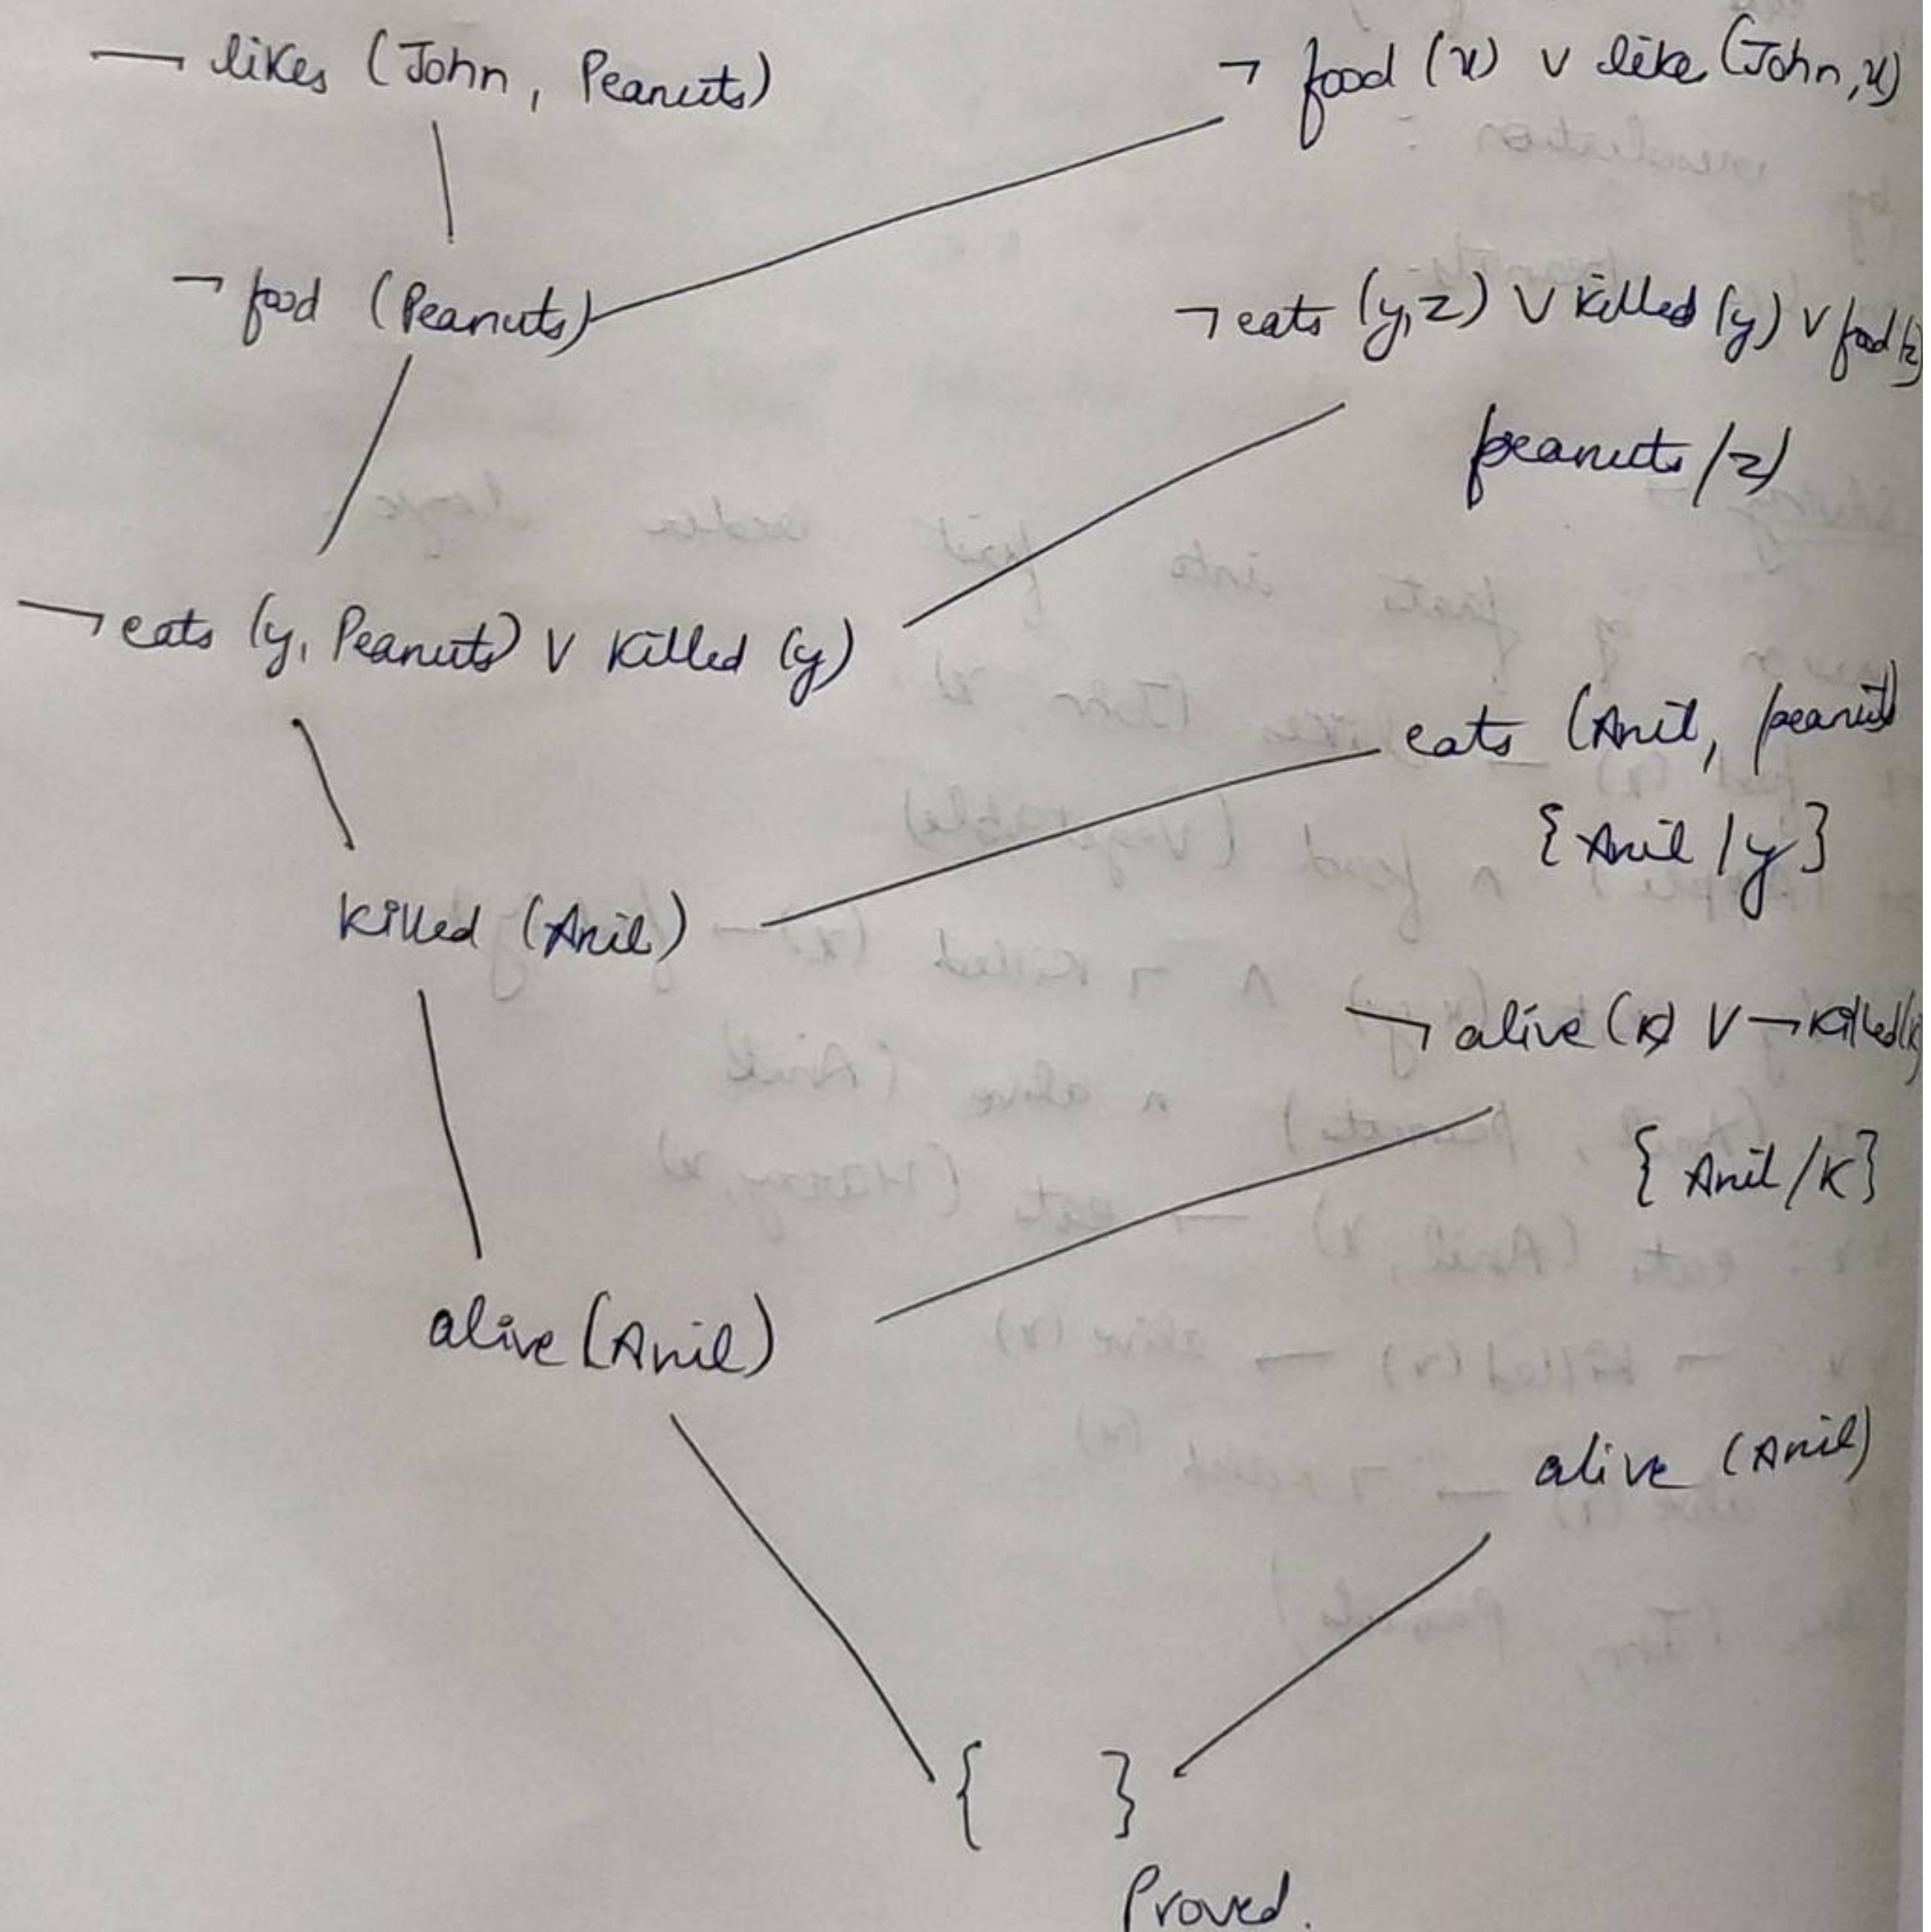 ¬ likes (John, Peanuts) ¬ food (x) ∨ like (John, x)
¬ food (Peanuts) ¬ eats (y, z) ∨ killed (y) ∨ food (z)
peanuts / z)
¬ eats (y, Peanuts) ∨ killed (y)
eats (Anil, peanut)
{ Anil / y }
killed (Anil)
¬ alive (k) ∨ ¬ killed (k)
{ Anil / K }
alive (Anil)
alive (Anil)
{ }
Proved.